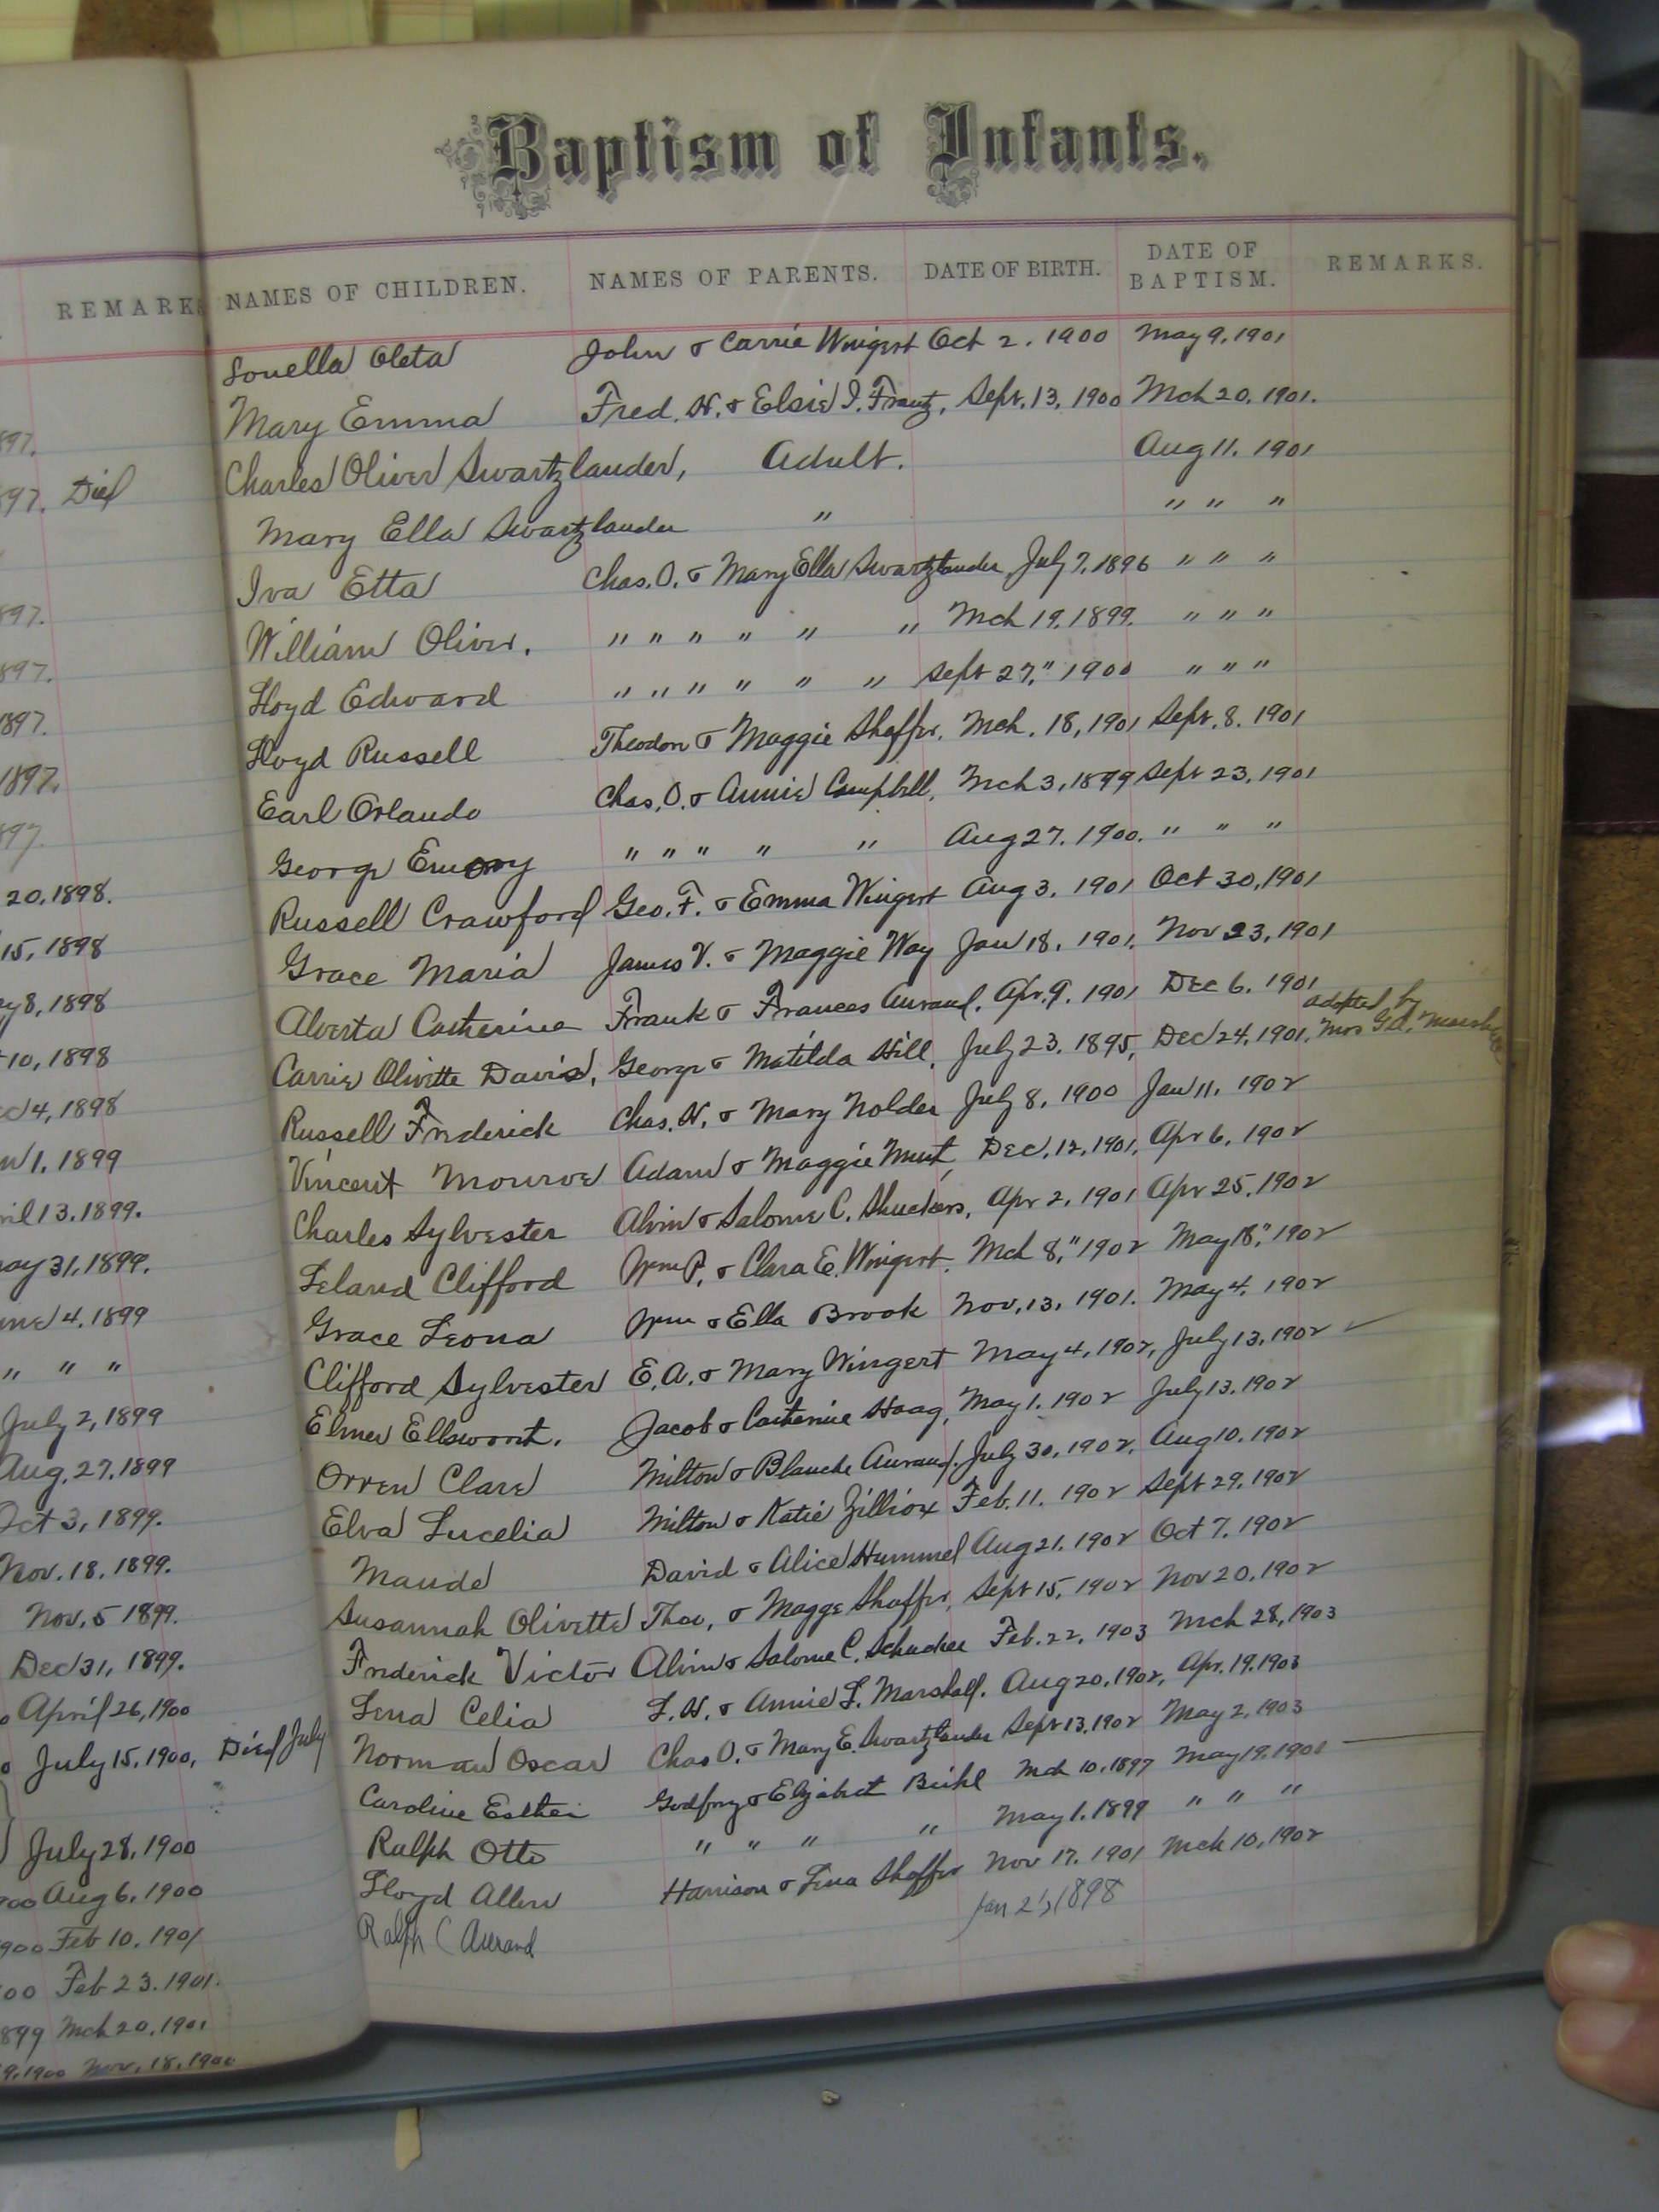 Baptism of Infants.
REMARKS
NAMES OF CHILDREN. NAMES OF PARENTS. DATE OF BIRTH. DATE OF BAPTISM. REMARKS.
Louella Oleta John & Carrie Wingert Oct 2. 1900 May 9, 1901
Mary Emma Fred. H. & Elsie I. Frantz, Sept. 13, 1900 Mch 20, 1901.
Charles Oliver Swartzlander, Adult. Aug 11. 1901
Mary Ella Swartzlander " " " "
Iva Etta Chas. O. & Mary Ella Swartzlander July 7, 1896 " " "
William Oliver. " " " " " " Mch 19, 1899. " " "
Lloyd Edward " " " " " " Sept 27," 1900 " " "
Lloyd Russell Theodore & Maggie Shaffer. Mch. 18, 1901 Sept. 8. 1901
Earl Orlando Chas. O. & Annie Campbell, Mch 3, 1899 Sept 23, 1901
George Emory " " " " " Aug 27. 1900. " " "
Russell Crawford Geo. F. & Emma Wingert Aug 3. 1901 Oct 30, 1901
Grace Maria James V. & Maggie Way Jan 18, 1901, Nov 23, 1901
Alverta Catherine Frank & Frances Aurand, Apr. 9. 1901 Dec 6. 1901
Carrie Olivette Davis, George & Matilda Hill, July 23. 1895, Dec 24, 1901, adopted by Mrs
Russell Frederick Chas. H. & Mary Nolder July 8, 1900 Jan 11, 1902
Vincent Monroe Adam & Maggie Dec. 12, 1901, Apr 6, 1902
Charles Sylvester Alvin & Salome C. Shuckers, Apr 2, 1901 Apr 25, 1902
Leland Clifford Wm P. & Clara E. Wingert. Mch 8," 1902 May 18," 1902
Grace Leona Wm & Ella Brook Nov. 13, 1901. May 4, 1902
Clifford Sylvester E. A. & Mary Wingert May 4, 1902, July 13, 1902
Elmer Ellsworth. Jacob & Catherine Haag, May 1. 1902 July 13, 1902
Orren Clare Milton & Blanche Aurand. July 30, 1902, Aug 10, 1902
Elva Lucelia Milton & Katie Zilliox Feb. 11. 1902 Sept 29, 1902
Maude David & Alice Hummel Aug 21, 1902 Oct 7, 1902
Susannah Olivette Theo, & Magge Shaffer, Sept 15, 1902 Nov 20, 1902
Frederick Victor Alvin & Salome C. Schucker Feb. 22, 1903 Mch 28, 1903
Lena Celia L. H. & Annie L. Marshall. Aug 20, 1902, Apr. 19, 1903
Norman Oscar Chas O. & Mary E. Swartzlander Sept 13, 1902 May 2, 1903
Caroline Esther Godfrey & Elizabeth Mch 10, 1897 May 19,
Ralph Otto " " " " May 1. 1899 " " "
Lloyd Allen Harrison & Lena Shaffer Nov 17. 1901 Mch 10, 1902
Ralph C Aurand Jan 1898
897.
897. Died
897.
897.
1897.
1897.
897.
20, 1898.
15, 1898
8, 1898
10, 1898
4, 1898
1, 1899
13. 1899.
May 31, 1899.
June 4, 1899
" " "
July 2, 1899
Aug. 27, 1899
Oct 3, 1899.
Nov. 18, 1899.
Nov. 5 1899.
Dec 31, 1899.
April 26, 1900
July 15, 1900, Died July
July 28, 1900
900 Aug 6, 1900
900 Feb 10, 1901
00 Feb 23. 1901.
899 Mch 20, 1901
9, 1900 Nov. 18, 1900